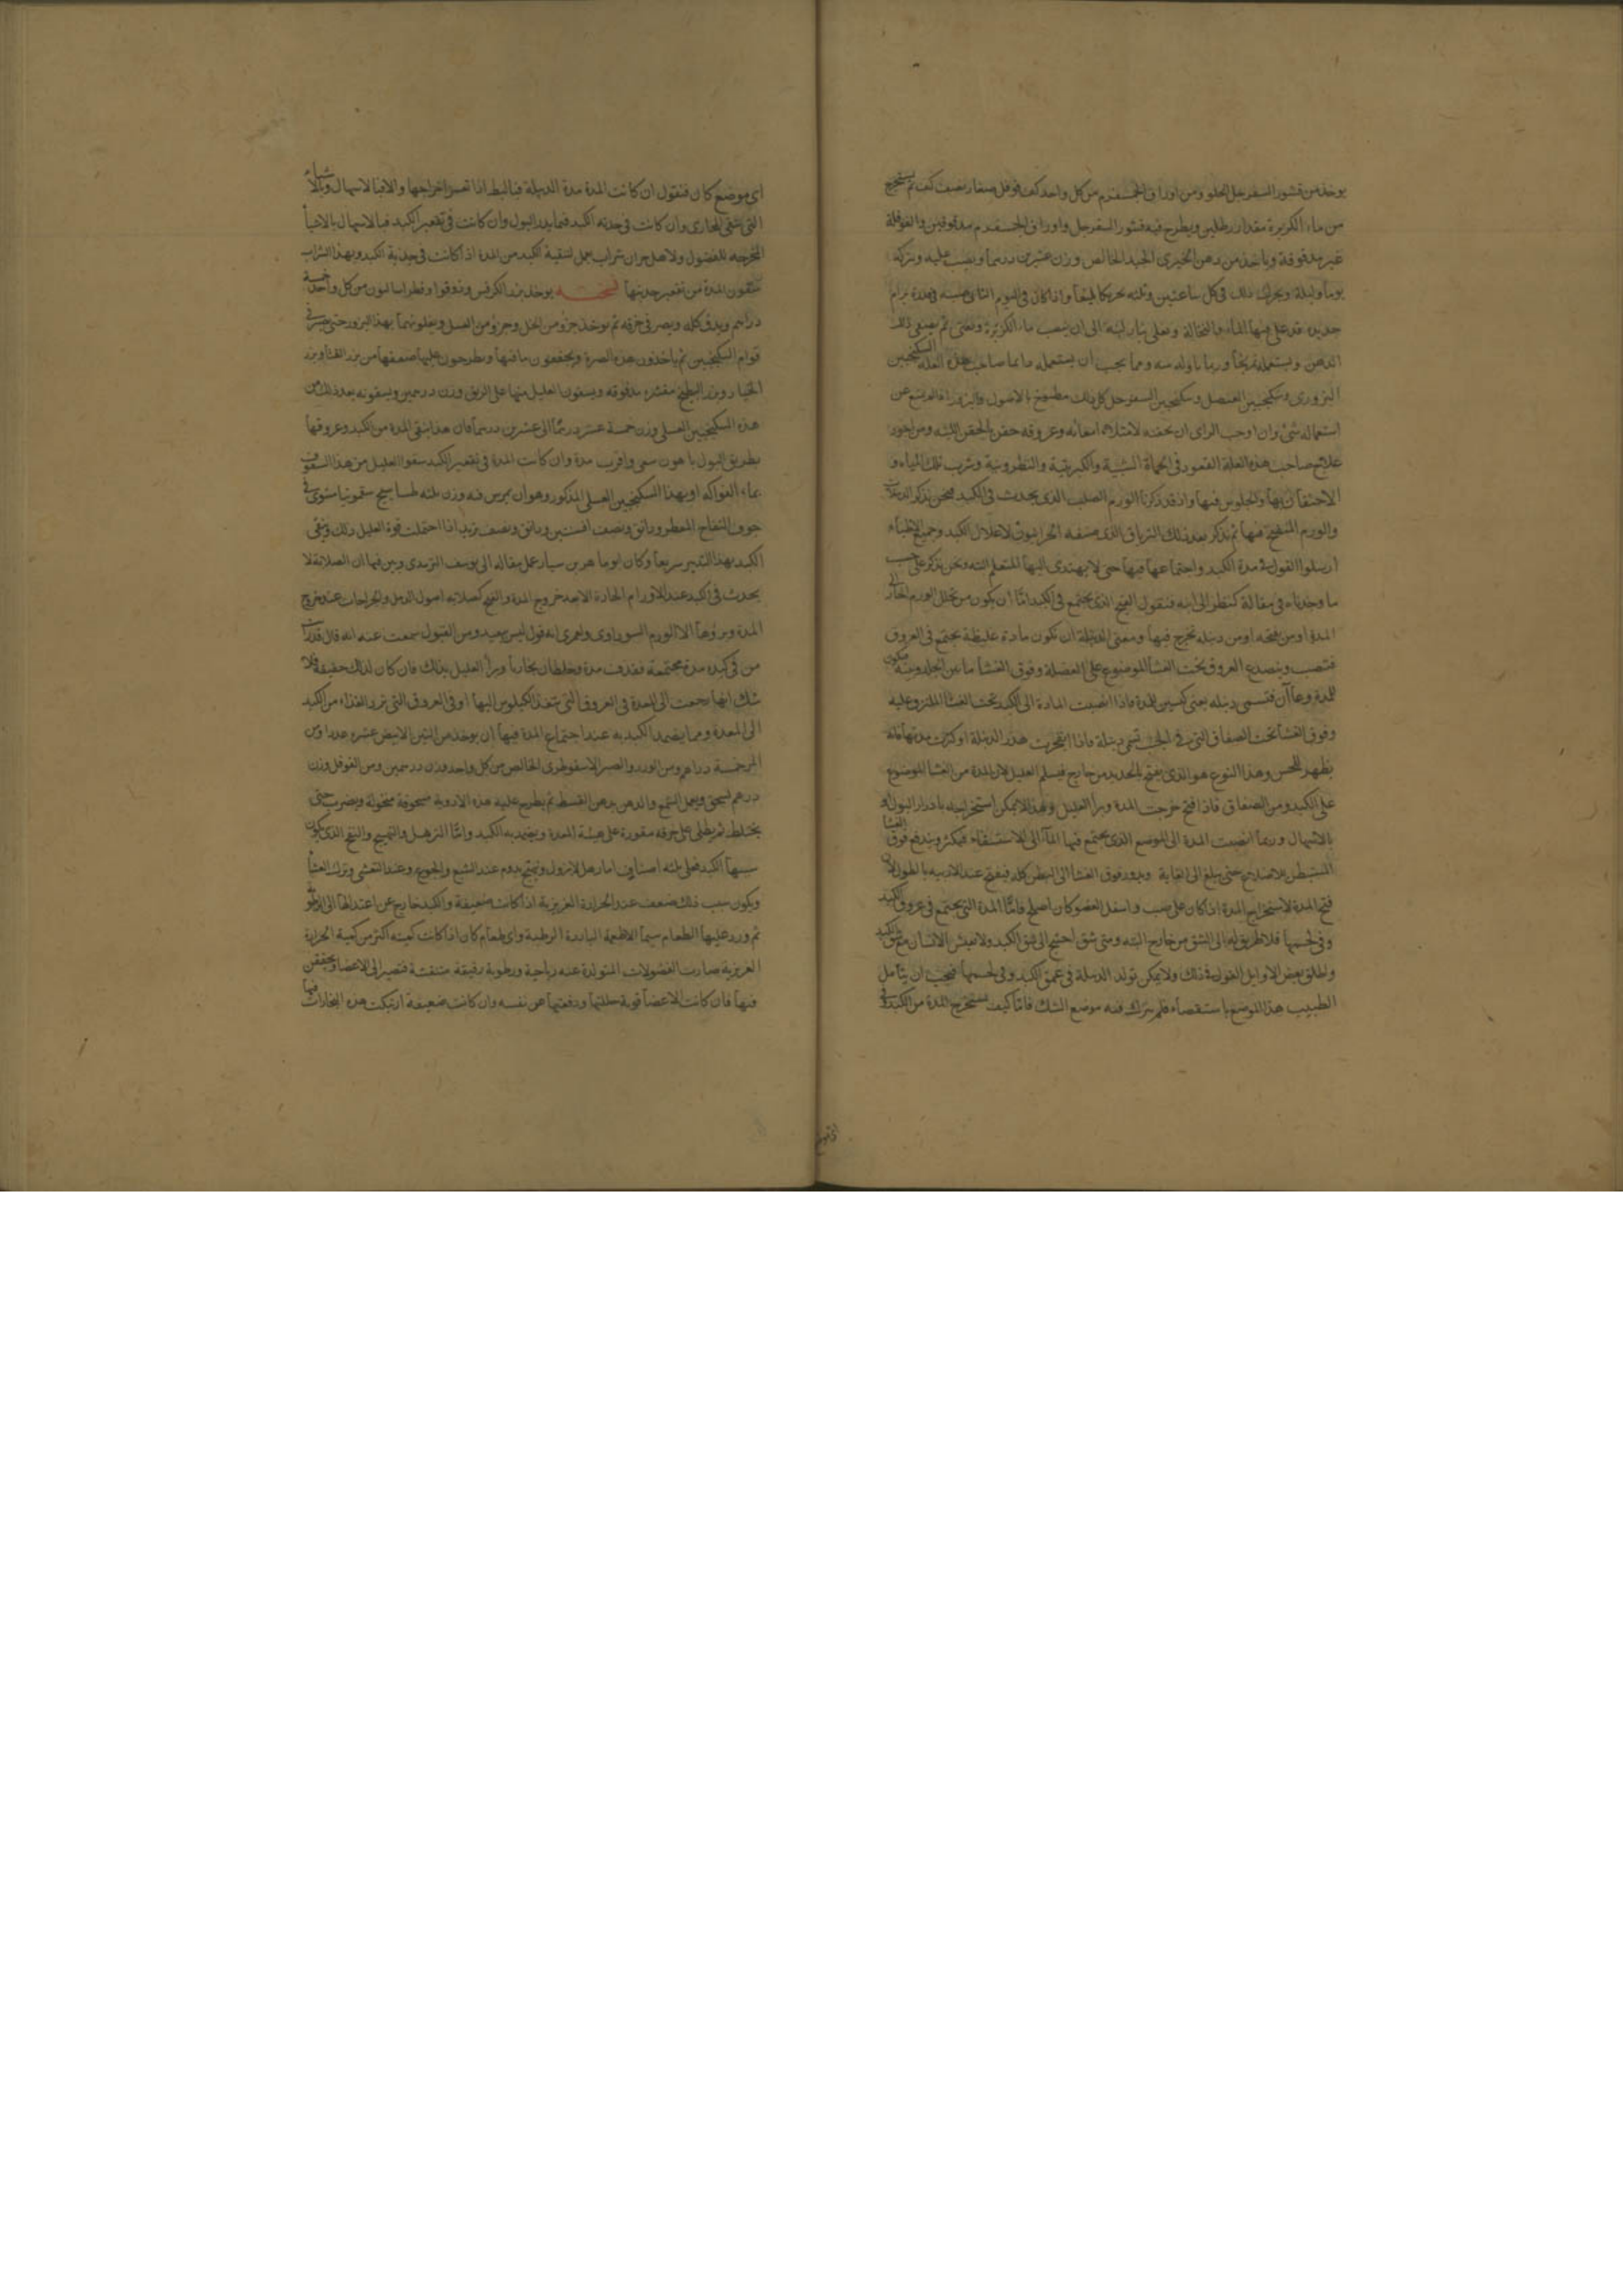 يوخذ من قشور السفرجل الحلو ومن اوراق الجسفرم من كل واحد كف فوفل صغار نصف كف ثم يستخرج
من ماء الكزبرة مقدار رطلين ويطرح فيه قشور السفرجل واوراق الجسفرم مدقوقين والفوفلة
غير مدقوقة وياخذ من دهن الخيري الجيد الخالص وزن عشرين درهما ويصب عليه ويتركه
يوما وليلة ويحرك ذلك في كل ساعتين وثلثه تحريكا بليغا واذا كان في اليوم الثاني صبه في قدرة برام
جديدة قد غلي فيها الماء والنخالة وتغلى بنار لينة الى ان ينصب ماء الكزبرة ويفنى ثم يصفى ذلك
الدهن ويستعمله تمريخا وربما ناوله منه ومما يجب ان يستعمله دائما صاحب هذه العلة السكنجبين
البزوري وسكنجبين العنصل وسكنجبين السفرجل كل ذلك مطبوخ بالاصول والبزور فانه يمتنع عن
استعماله شئ وان اوجب الراي ان تحقنه لامتلاء امعائه وعروقه حقن بالحقن اللينة ومن اجود
علاج صاحب هذه العلة القعود في الحماة الشبية والكبريتية والنطرونية وشرب تلك المياه و
الاحتقان بها والجلوس فيها واذ قد ذكرنا الورم الصلب الذي يحدث في الكبد فنحن نذكر الدبيلات
والورم المتقيح فيها ثم نذكر بعد ذلك الترياق الذي صنفه الحرانيون لاعلال الكبد وجميع الاطباء
ارسلوا القول في مدة الكبد واجتماعها فيها حتى لا يهتدى اليها المتعلم البتة ونحن نذكر على حسب
ما وجدناه في مقالة كنطر الى ابنه فنقول القيح الذي يجتمع في الكبد اما ان يكون من تحلل الورم الحار الى
المدة او من فتحه او من دبيلة تخرج فيها ومعنى الدبيلة ان تكون مادة غليظة تجتمع في العروق
فتنصب وينصدع العروق تحت الغشا الموضوع على العضلة وفوق الغشا ما بين الجلد ومنه فيكون
للمدة وعاآن فتسمى دبيله يعنى كسين للمدة فاذا انصبت المادة الى الكبد تحت الغشا الملتزو عليه
وفوق الغشا تحت الصفاق التي في الجنب تسمى دبيلة فاذا انفجرت هذه الدبيلة او كثرت مدتها فانه
يظهر للحس وهذا النوع هو الذي يفتح بالحديد من خارج فيسلم العليل لان المدة من الغشا الموضوع
على الكبد ومن الصفاق فاذا فتح خرجت المدة وبرأ العليل وهذا لا يمكن استخراجه بادرار البول او
بالاسهال وربما انصبت المدة الى الموضع الذي يجتمع فيها المآ الى الاستسقاء فيكثر ويندفع فوق الغشا
المستبطن للاضلاع حتى يبلغ الى الغاية ويدور فوق الغشا الى البطن كله فيفتح عند الاربيه بالطول لان
فتح المدة لاستخراج المدة اذا كان على صب واسفل العضو كان اصلح فاما المدة التي يجتمع في عروق الكبد
وفي لحمها فلا طريق له الى الشق من خارج البته ومتى شق احتيج الى شق الكبد ولا يعيش الانسان مع شق الكبد
واطلق بعض الاوايل القول في ذلك ولا يمكن تولد الدبيلة في عمق الكبد وفي لحمها فيجب ان يتامل
الطبيب هذا الموضع باستقصاء فلم يترك فيه موضع الشك فاما كيف يستخرج المدة من الكبد في
اى موضع كان فنقول ان كانت المدة مدة الدبيلة فبالبط اذا تعسر اخراجها والا فبالاسهال وبالاشياء
التي تنقي المجاري وان كانت في حدبة الكبد فبما يدر البول وان كانت في تقعير الكبد فبالاسهال بالاشيا
المخرجة للفضول ولاهل حران شراب يعمل لتنقية الكبد من المدة اذا كانت في حدبة الكبد وبهذا الشراب
ينقون المدة من تقعير حدبتها نسخته يوخذ بزر الكرفس ودوقوا وفطراساليون من كل واحد خمسة
دراهم ويدق كله ويصر في خرقة ثم يوخذ جزو من الخل وجزو من العسل ويغلونهما بهذا البزور حتى يصير في
قوام السكنجبين ثم ياخذون هذه الصرة ويجففون ما فيها ويطرحون عليها ضعفها من بزر القثا وبزر
الخيار وبزر البطيخ مقشره مدقوقه ويسقون العليل منها على الريق وزن درهمين ويسقونه بعد ذلك من
هذه السكنجبين العسلي وزن خمسة عشر درهما الى عشرين درهما فان هذا ينقى المدة من الكبد وعروقها
بطريق البول باهون سعى واقرب مدة وان كانت المدة في تقعير الكبد سقوا العليل من هذا السفوف
بماء الفواكه او بهذا السكنجبين العسلي المذكور وهو ان يمرس فيه وزن ثلثه طساسيج سقمونيا مشوى في
جوف التفاح المعطر ودانق ونصف افسنتين ودانق ونصف تربد اذا احتملت قوة العليل ذلك وينقى
الكبد بهذا التدبير سريعا وكان ابو ماهر بن سيار عمل مقاله الى يوسف التزيدى وبين فيها ان الصلابة لا
يحدث في الكبد عند الاورام الحادة الا بعد خروج المدة والقيح كصلابه اصول الدمل والجراحات عند خروج
المدة وبرؤها الا الورم السوداوى ولعمرى انه قول ليس ببعيد ومن القبول سمعت عنه انه قال قد رايت
من في كبده مدة مجتمعة فقذف مدة وخلطان بخاريا وبرأ العليل بذلك فان كان لذلك حقيقة فلا
شك انها رجعت الى المعدة في العروق التي تنفذ الكيلوس اليها او في العروق التي ترد الغذاء من الكبد
الى المعدة ومما يضمد الكبد به عند اجتماع المدة فيها ان يوخذ من التين الابيض عشره عددا ومن
المر خمسة دراهم ومن الورد والصبر الاسقوطرى الخالص من كل واحد وزن درهمين ومن الفوفل وزن
درهم يسحق ويعمل الشمع والدهن بدهن القسط ثم يطرح عليه هذه الادوية مسحوقة منخولة ويضرب حتى
يختلط ثم يطلى على خرقه مقورة على هيئة المعدة ويضمد به الكبد واما الترهل والتهبج والنفخ الذي يكون
سببها الكبد فعلى ثلثه اصناف اما رهل لا يزول وتهبج يدوم عند الشبع والجوع وعند التعشى وترك العشا
ويكون سبب ذلك ضعف عند الحرارة الغريزية اذا كانت ضعيفة والكبد خارج عن اعتدالها الى الرطوبة
ثم ورد عليها الطعام سيما الاطعمة الباردة الرطبة واى طعام كان اذا كانت كميته اكثر من كمية الحرارة
الغريزية صارت الفضولات المتولدة عنه رياحية ورطوبة رقيقة متنفشة فتصير الى الاعضاء ويحتقن
فيها فان كانت الاعضا قوية حللتها ودفعتها عن نفسه وان كانت ضعيفة ارتبكت هذه البخارات فيها